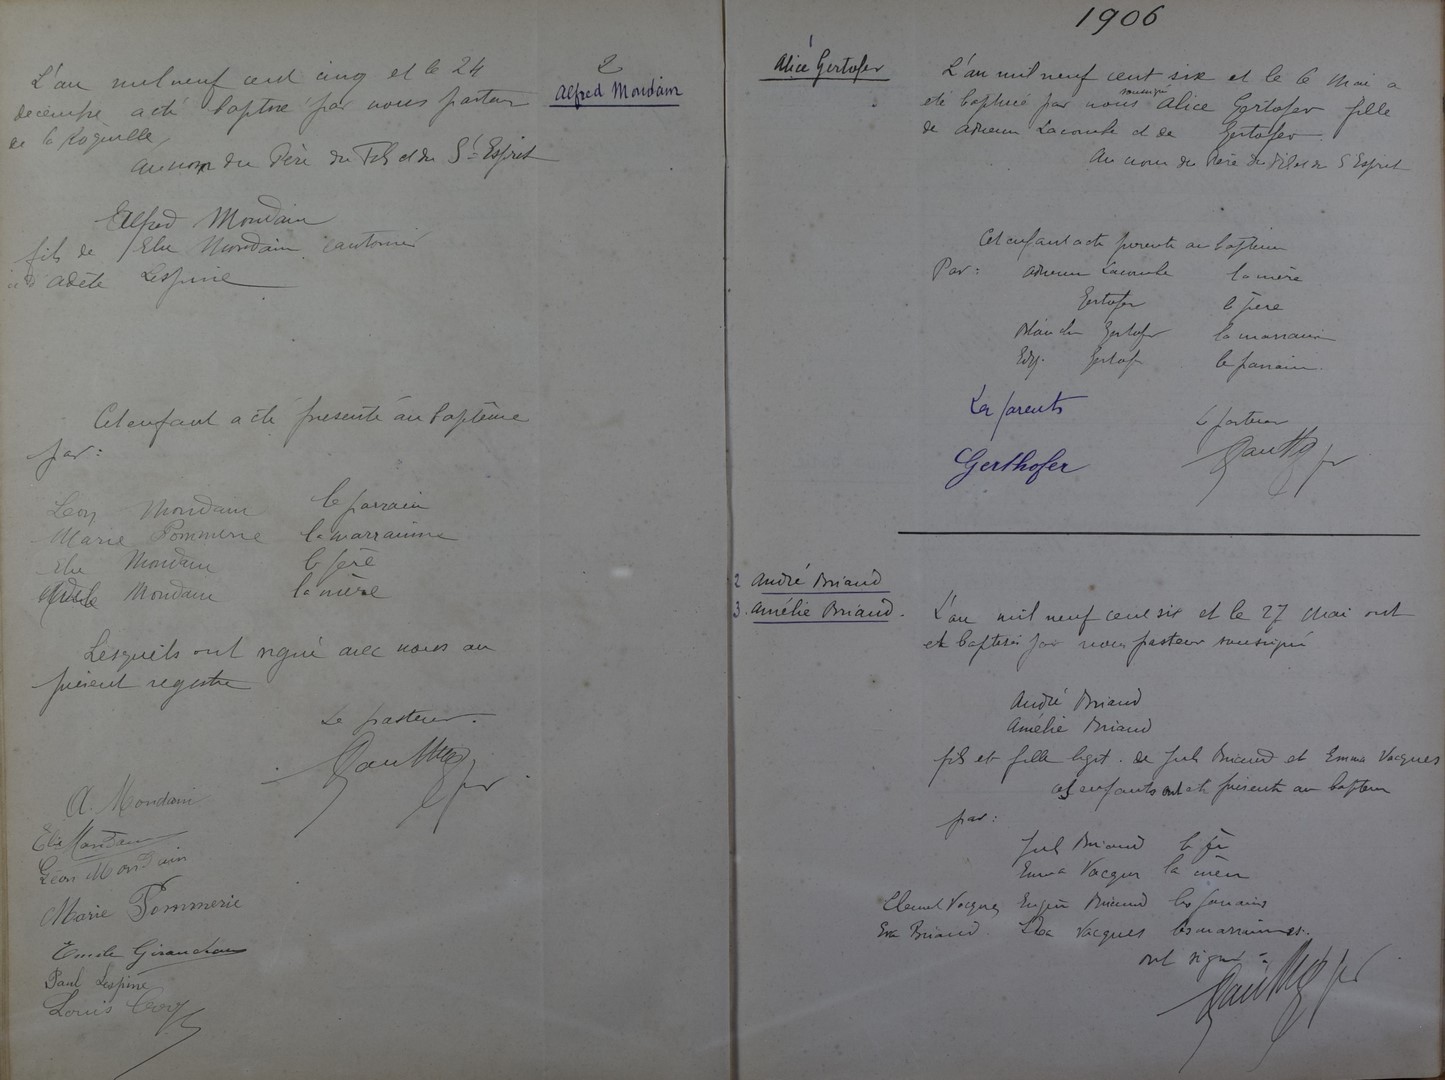 L'an mil neuf cent cinq et le 24
décembre a été baptisé par nous pasteur
de la Roquille,
au nom du Père du Fils et du St Esprit
Alfred Mondain
fils de Elie Mondain cantonnier
et d'Adèle Lespine
Cet enfant a été présenté au baptême
par:
Léon Mondain le parrain
Marie Pommerie la marrainne
Elie Mondain le père
Adèle Mondain la mère
Lesquels ont signé avec nous au
présent registre
Le pasteur.
A. Mondain
Elie Mondain
Léon Mondain
Marie Pommerie
Girandeau
Paul Lespine
Louis
2
Alfred Mondain
1906
1
Alice Gertofer
L'an mil neuf cent six et le 6 Mai a
été baptisée par nous soussigné Alice Gertofer fille
de Lacombe et de Gertofer
Au nom du Père du Fils et du S Esprit
Cet enfant a été présenté au baptême
Par: Lacombe la mère
Gertofer le père
Blanche Gertofer la marraine
Gertofer le parrain.
Les parents
Le pasteur
Gerthofer
2 André Briand
3. Amélie Briand.
L'an mil neuf cent six et le 27 Mai ont
été baptisés par nous pasteur soussigné
André Briand
Amélie Briand
fils et fille légit. de Jules Briand et Emma Vacques
ces enfants ont été présentés au baptême
par:
Jules Briand le père
Emma Vacques la mère
Clément Vacques Eugène Briand les parrains
Eva Briand. Léa Vacques les marraines.
ont signé